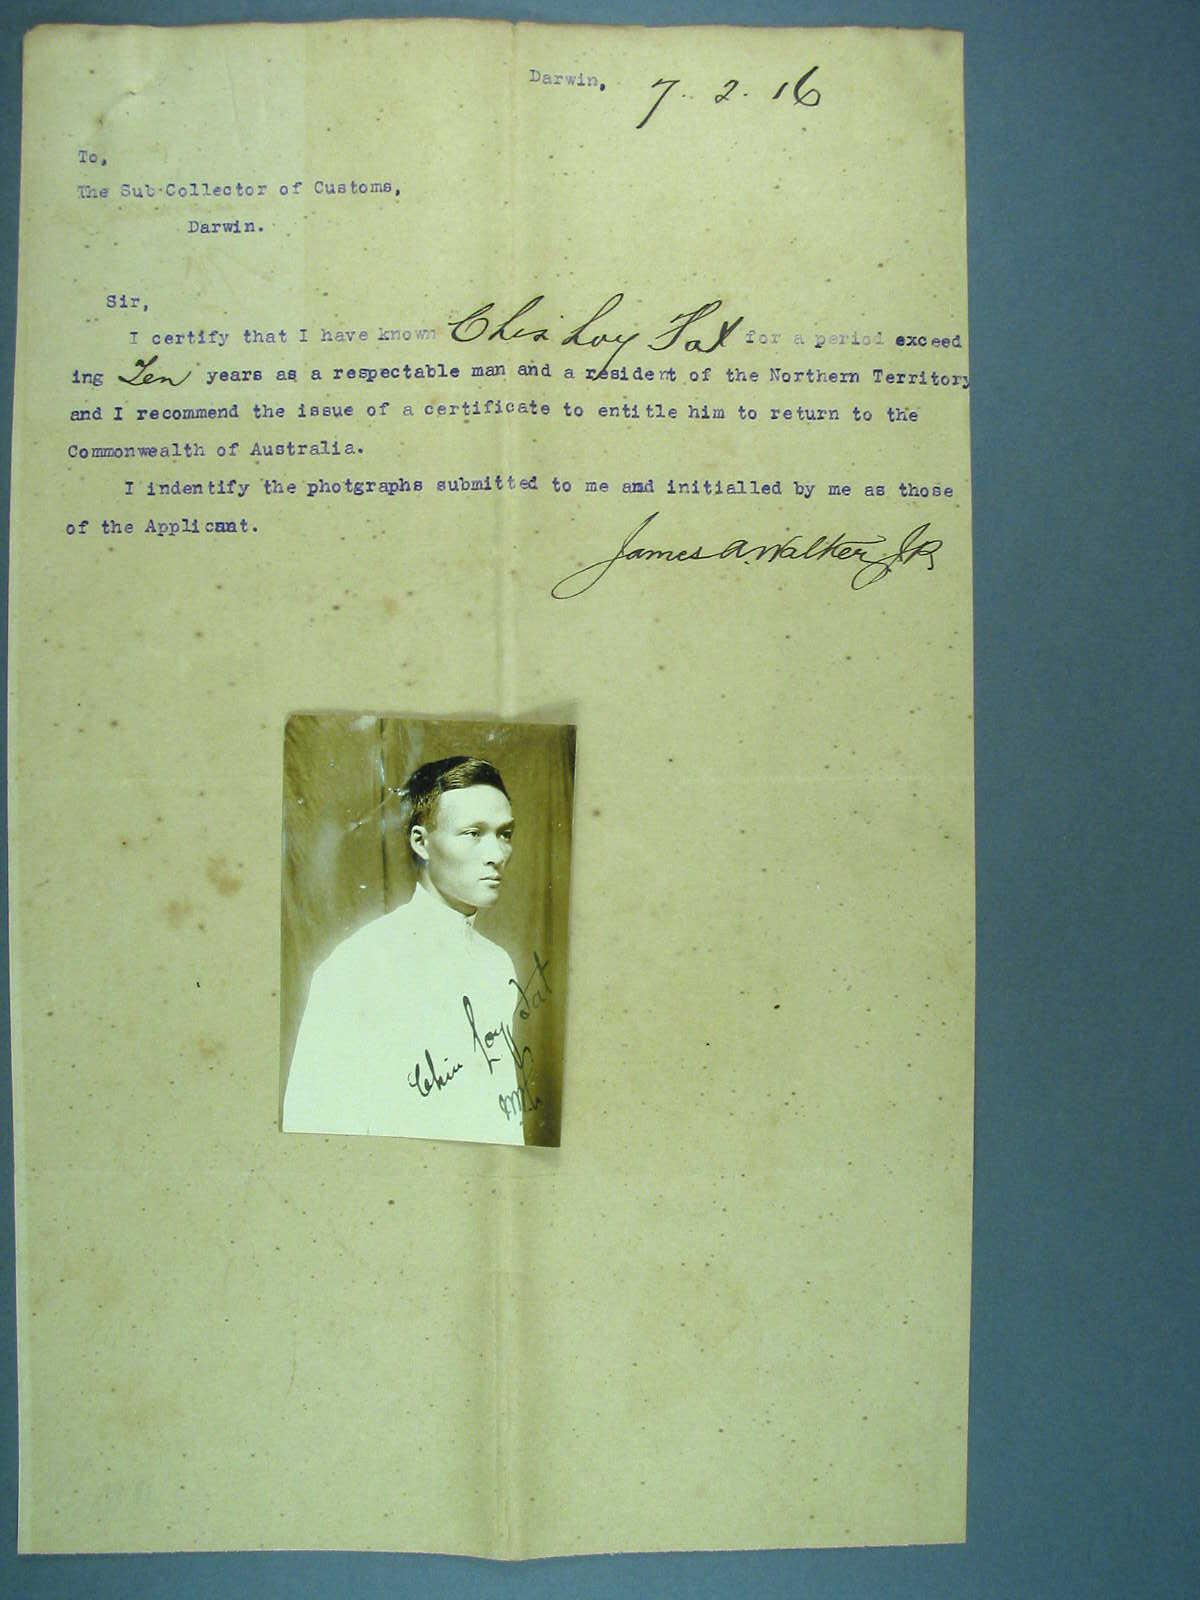 Darwin, 7. 2. 16
To,
The Sub-Collector of Customs,
Darwin.
Sir,
I certify that I have known Chin Loy Fat for a period exceed
ing Ten years as a respectable man and a resident of the Northern Territory
and I recommend the issue of a certificate to entitle him to return to the
Commonwealth of Australia.
I indentify the photgraphs submitted to me and initialled by me as those
of the Applicant.
James A. Walker J.P.
Chin Loy Fat